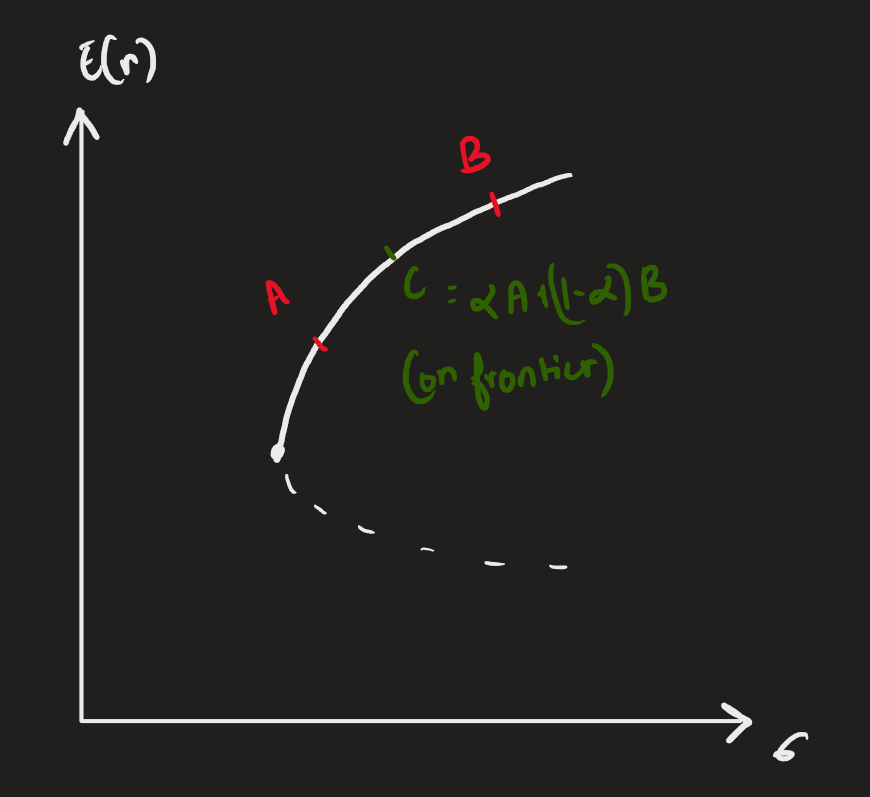 E(r)
B
A
C = αA+(1-α)B
(on frontier)
σ